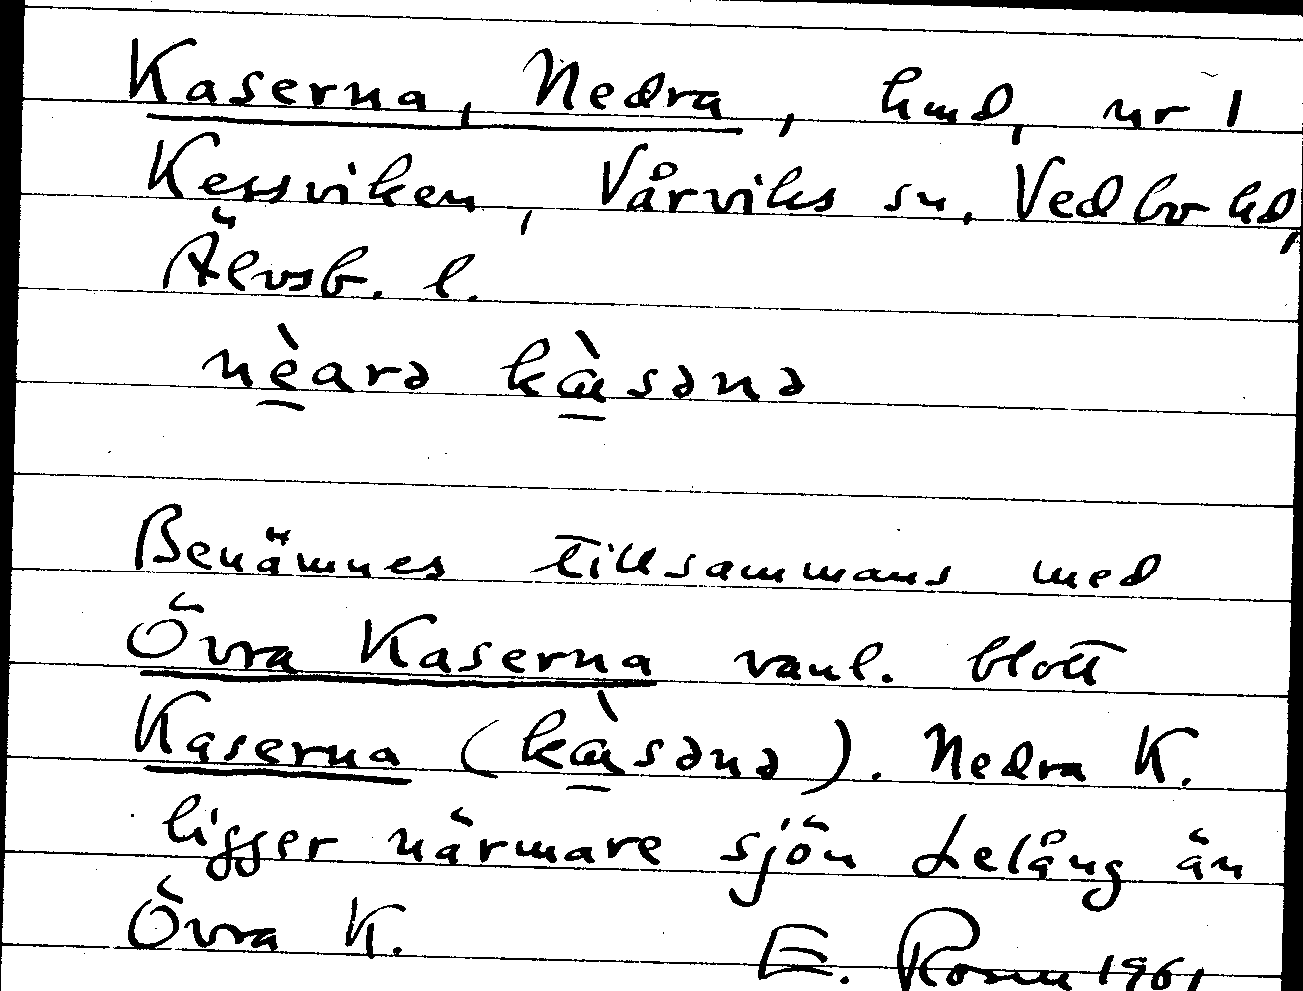 Kaserna, Nedra, hmd, nr 1
Kessviken, Vårviks sn. Vedbo hd,
Älvsb. l.
nèarə kɑ̀sənə
Benämnes tillsammans med
Övra Kaserna vanl. blott
Kaserna (kɑ̀sənə). Nedra K.
ligger närmare sjön Lelång än
Övra K. E. Rosen 1961